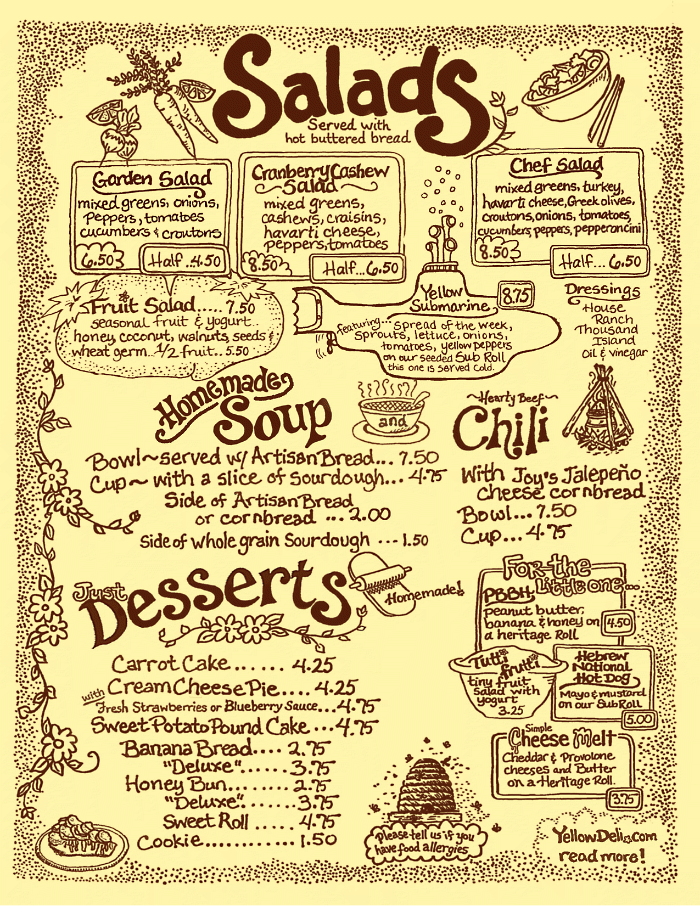 Salads
Served with
hot buttered bread
Garden Salad
mixed greens, onions,
Peppers, tomatoes
cucumbers & croutons
6.50
Half...4.50
Cranberry Cashew
Salad
mixed greens,
cashews, craisins,
havarti cheese,
peppers, tomatoes
8.50
Half...6.50
Chef Salad
mixed greens, turkey,
havarti cheese, Greek olives,
croutons, onions, tomatoes,
cucumbers, peppers, pepperoncini
8.50
Half...6.50
Fruit Salad.....7.50
seasonal fruit & yogurt
honey, coconut, walnuts, seeds &
wheat germ...1/2 fruit..5.50
Yellow
Submarine
8.75
featuring... spread of the week,
sprouts, lettuce, onions,
tomatoes, yellow peppers
on our seeded Sub Roll
this one is served cold.
Dressings
House
Ranch
Thousand
Island
Oil & vinegar
Homemade
Soup
and
~Hearty Beef~
Chili
Bowl~served w/ Artisan Bread... 7.50
Cup~ with a slice of Sourdough... 4.75
Side of Artisan Bread
or cornbread ... 2.00
Side of whole grain Sourdough ...1.50
With Joy's Jalepeño
cheese cornbread
Bowl...7.50
Cup...4.75
Just
Desserts
Homemade!
Carrot Cake....... 4.25
Cream Cheese Pie.... 4.25
with Fresh Strawberries or Blueberry Sauce...4.75
Sweet Potato Pound Cake ...4.75
Banana Bread.... 2.75
"Deluxe"....... 3.75
Honey Bun...... 2.75
"Deluxe"....... 3.75
Sweet Roll ..... 4.75
Cookie.......... 1.50
For the
Little one...
PBBH
peanut butter,
banana & honey on
a heritage Roll
4.50
Tutti
frutti
tiny fruit
salad with
yogurt
3.25
Hebrew
National
Hot Dog
Mayo & mustard
on our Sub Roll
5.00
Simple
Cheese Melt
Cheddar & Provolone
cheeses and Butter
on a Heritage Roll
3.75
please tell us if you
have food allergies
YellowDeli.com
read more!